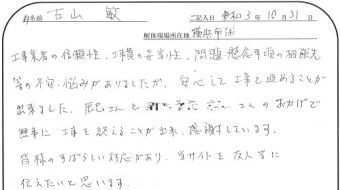 お名前 古山 敏 ご記入日 令和3年10月31日
解体現場所在地 横浜市
工事業者の信頼性、工事費の妥当性、問題・懸念事項の相談先
等の不安・悩みがありましたが、安心して工事を進めることが
出来ました。 さんと さんのおかげで
無事に工事を終えることが出来、感謝しています。
皆様のすばらしい対応があり、当サイトを友人等に
伝えたいと思います。